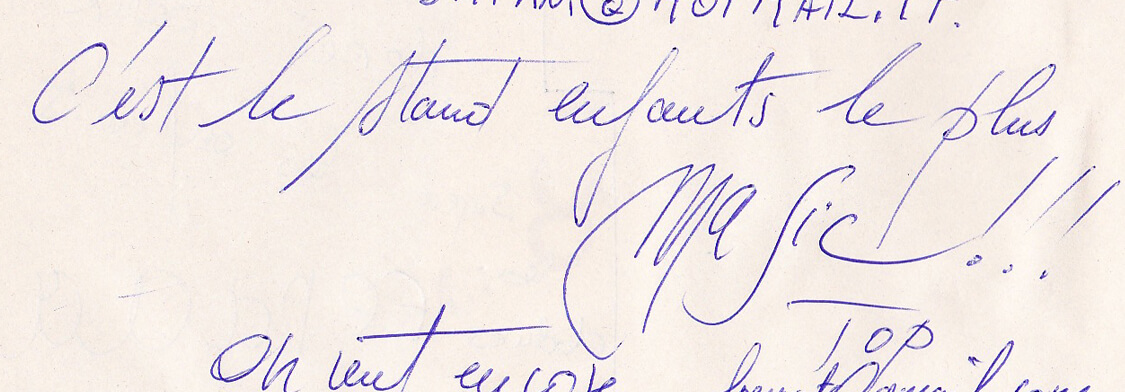 @HOTMAIL.
C'est le stand enfants le plus
MAGiC !!!
TOP
On veut encore